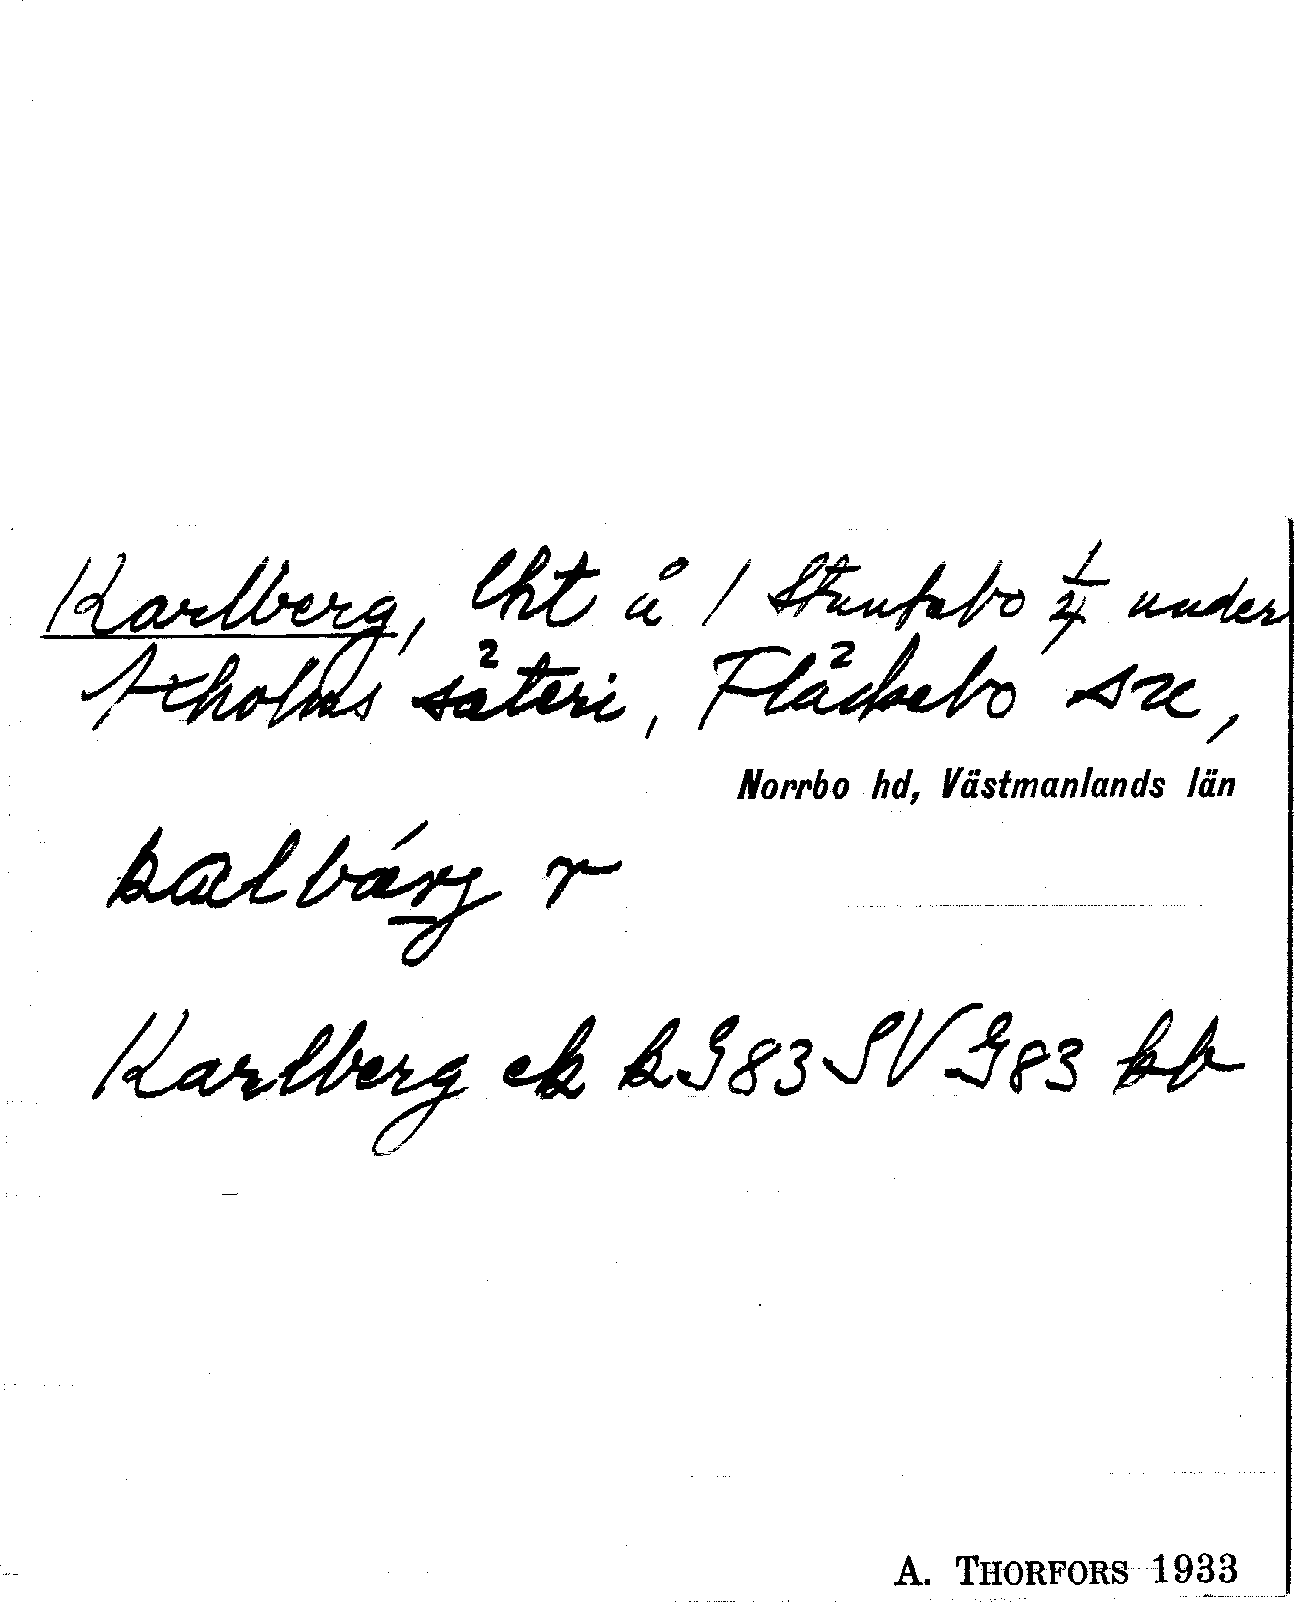 Karlberg, lht å 1 Stuntebo 1/4 under
Axholms säteri, Fläckebo sn,
Norrbo hd, Västmanlands län
kalbárj r
Karlberg ek k G83 SV G83 kb
A. THORFORS 1933